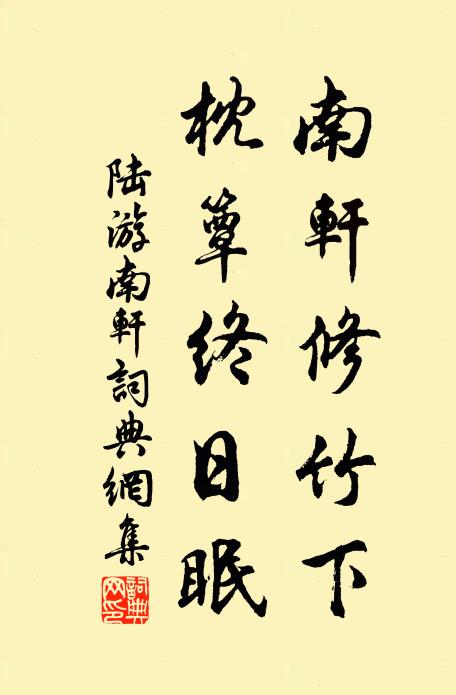 南軒修竹下
枕簟終日眠
陸游南軒詞典網集
詞典網印